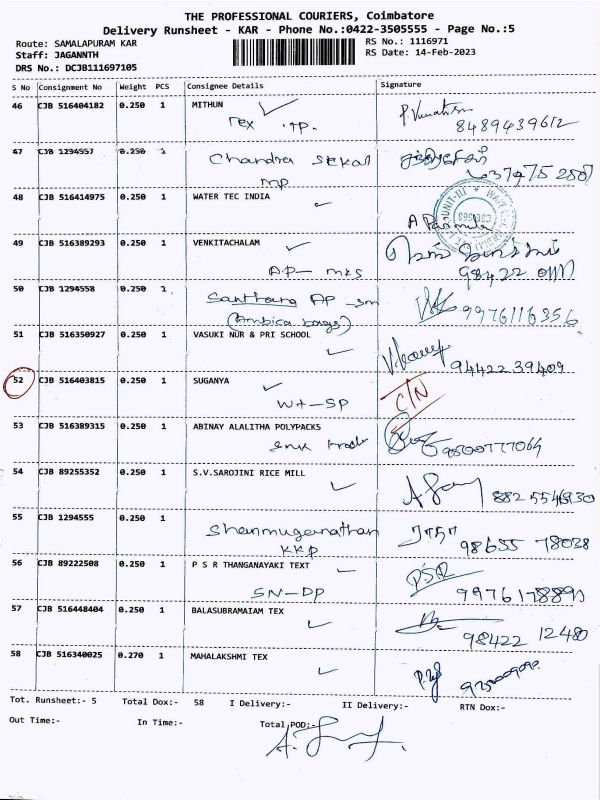 THE PROFESSIONAL COURIERS, Coimbatore
Delivery Runsheet - KAR - Phone No.:0422-3505555 - Page No.:5
Route: SAMALAPURAM KAR RS No.: 1116971
Staff: JAGANNTH RS Date: 14-Feb-2023
DRS No.: DCJB111697105
S No Consignment No Weight PCS Consignee Details Signature
46 CJB 516404182 0.250 1 MITHUN
Tex .TP. 8489439612
47 CJB 1294557 0.250 1
Chandra Sekar
mp
48 CJB 516414975 0.250 1 WATER TEC INDIA
UNIT-III
49 CJB 516389293 0.250 1 VENKITACHALAM
AP - mks
50 CJB 1294558 0.250 1
Santhana AP - sm 9976116356
(Ambica bags)
51 CJB 516350927 0.250 1 VASUKI NUR & PRI SCHOOL
94422 39409
52 CJB 516403815 0.250 1 SUGANYA
W+-SP C/N
53 CJB 516389315 0.250 1 ABINAY ALALITHA POLYPACKS
9500777064
54 CJB 89255352 0.250 1 S.V.SAROJINI RICE MILL
55 CJB 1294555 0.250 1
Shanmuganathan
KKP 98655 78038
56 CJB 89222508 0.250 1 P S R THANGANAYAKI TEXT
PSR
SN-DP
57 CJB 516448404 0.250 1 BALASUBRAMAIAM TEX
98422 12480
58 CJB 516340025 0.270 1 MAHALAKSHMI TEX
Tot. Runsheet:- 5 Total Dox:- 58 I Delivery:- II Delivery:- RTN Dox:-
Out Time:- In Time:- Total POD:-